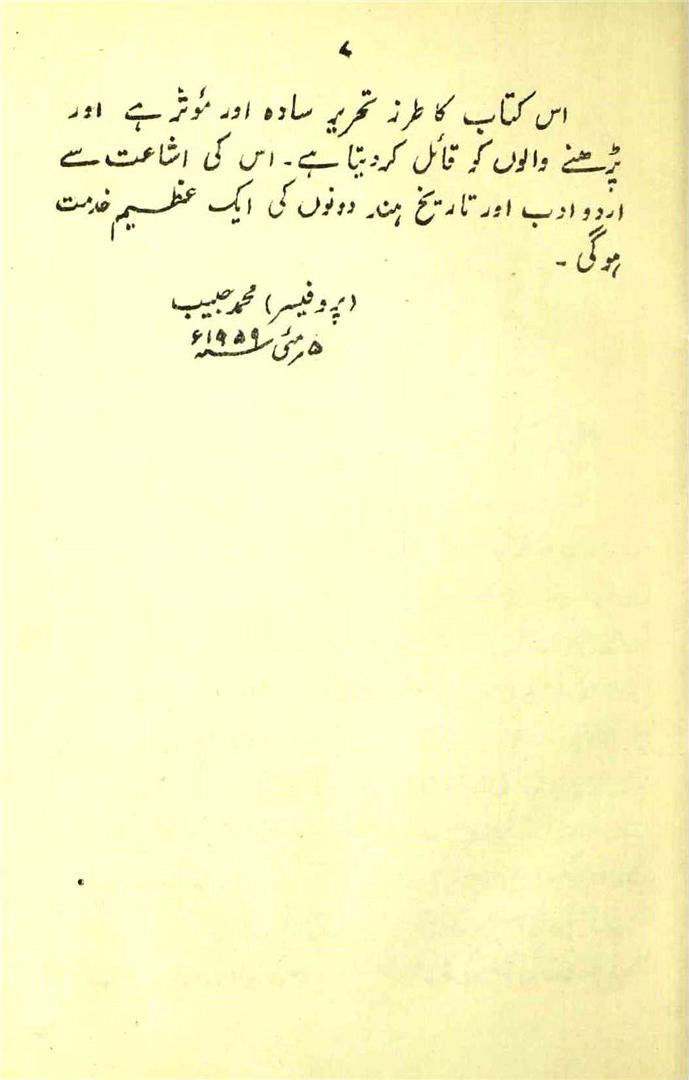 ۷
اس کتاب کا طرز تحریر سادہ اور مؤثر ہے اور
پڑھنے والوں کو قائل کر دیتا ہے۔ اس کی اشاعت سے
اردو ادب اور تاریخ ہند دونوں کی ایک عظیم خدمت
ہوگی۔
(پروفیسر) محمد حبیب
۵ مئی سنہ ۱۹۵۹ء